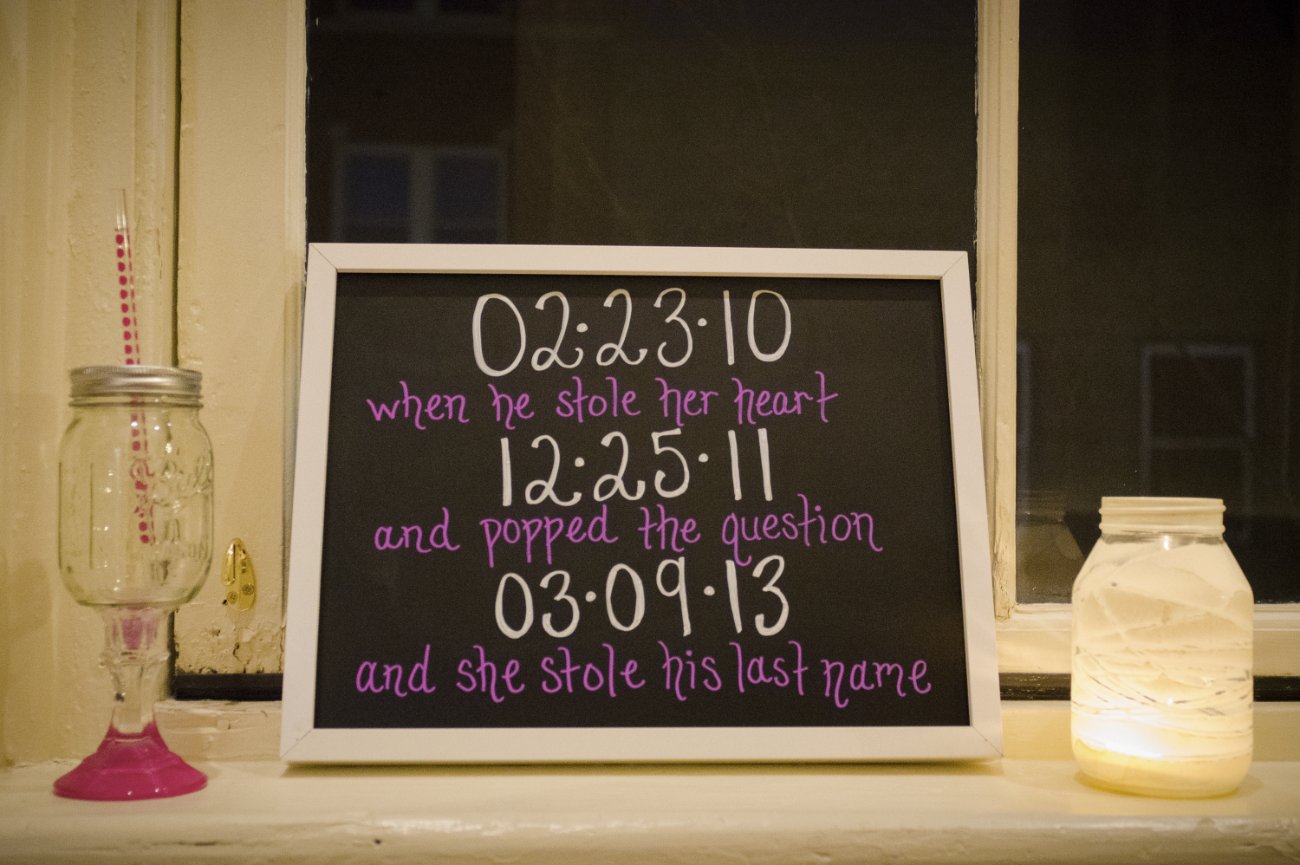 02·23·10
when he stole her heart
12·25·11
and popped the question
03·09·13
and she stole his last name